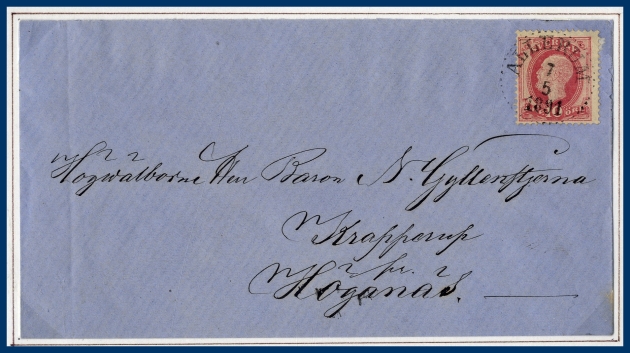 7
5
1891
Högwälborne Herr Baron N. Gyllenstjerna
Krapperup
pr.
Höganäs.